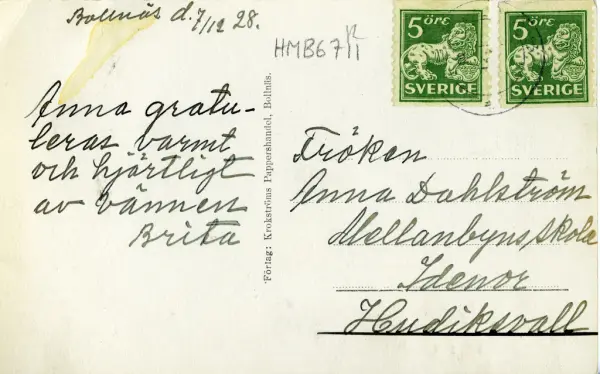 Bollnäs d. 7/12 28.
HMB67 12/11
Anna gratu-
leras varmt
och hjärtligt
av vännen
Brita
Förlag: Krokströms Pappershandel, Bollnäs.
5 ÖRE
SVERIGE
5 ÖRE
SVERIGE
Fröken
Anna Dahlström
Mellanbyns skola
Idenor
Hudiksvall